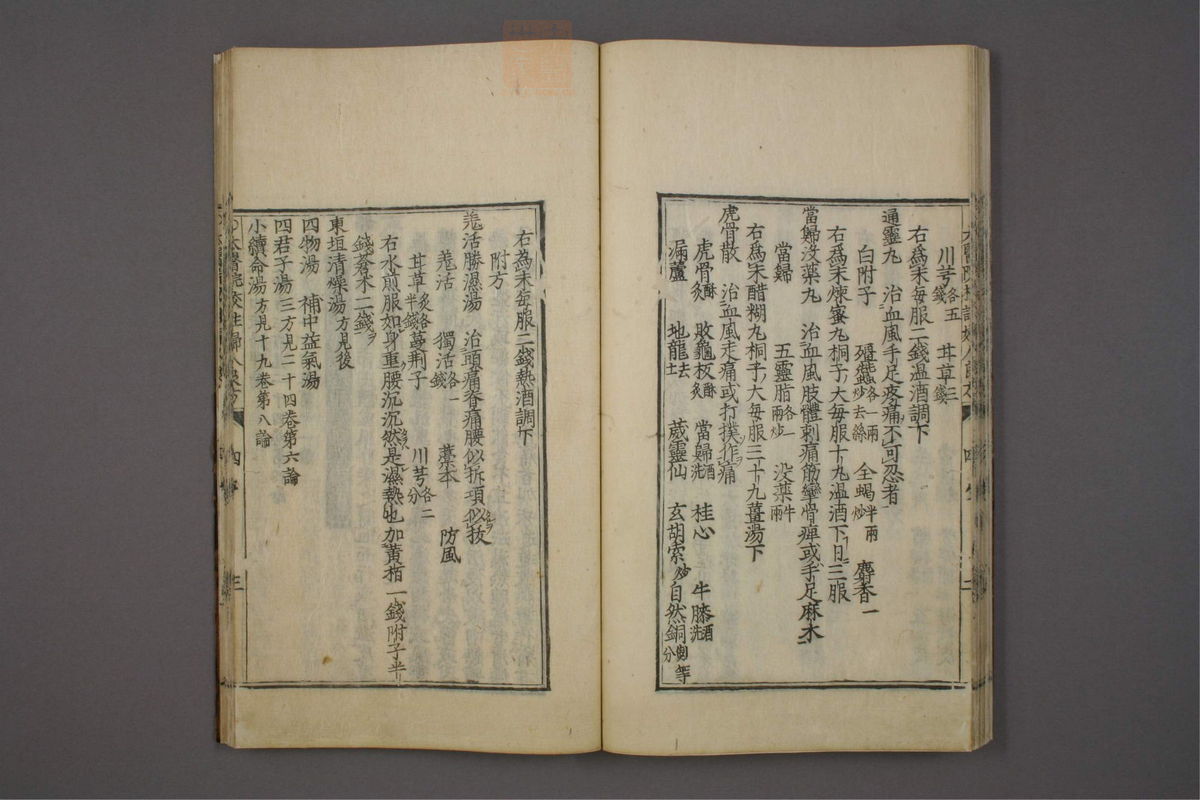 川芎各五錢 甘草三錢
右爲末每服二錢温酒調下
通靈丸 治血風手足疼痛不可忍者
白附子 殭蠶各一兩炒去絲 全蝎半兩炒 麝香一
右爲末煉蜜丸桐子大每服十丸温酒下日三服
當歸没藥丸 治血風肢體刺痛筋攣骨痺或手足麻木
當歸 五靈脂各一兩炒 没藥半兩
右爲末醋糊丸桐子大每服三十丸薑湯下
虎骨散 治血風走痛或打撲作痛
虎骨酥炙 敗龜板酥炙 當歸酒洗 桂心 牛膝酒洗
漏蘆 地龍去土 葳靈仙 玄胡索炒 自然銅煅等分
右為末每服二錢熱酒調下
附方
羗活勝濕湯 治頭痛脊痛腰似折項似拔
羗活 獨活各一錢 藁本 防風
甘草炙各半錢 蔓荆子 川芎各二分
右水煎服如身重腰沉沉然是濕熱也加黄栢一錢附子半
錢蒼术二錢
東垣清燥湯方見後
四物湯 補中益氣湯
四君子湯三方見二十四卷第六論
小續命湯方見十九卷第八論